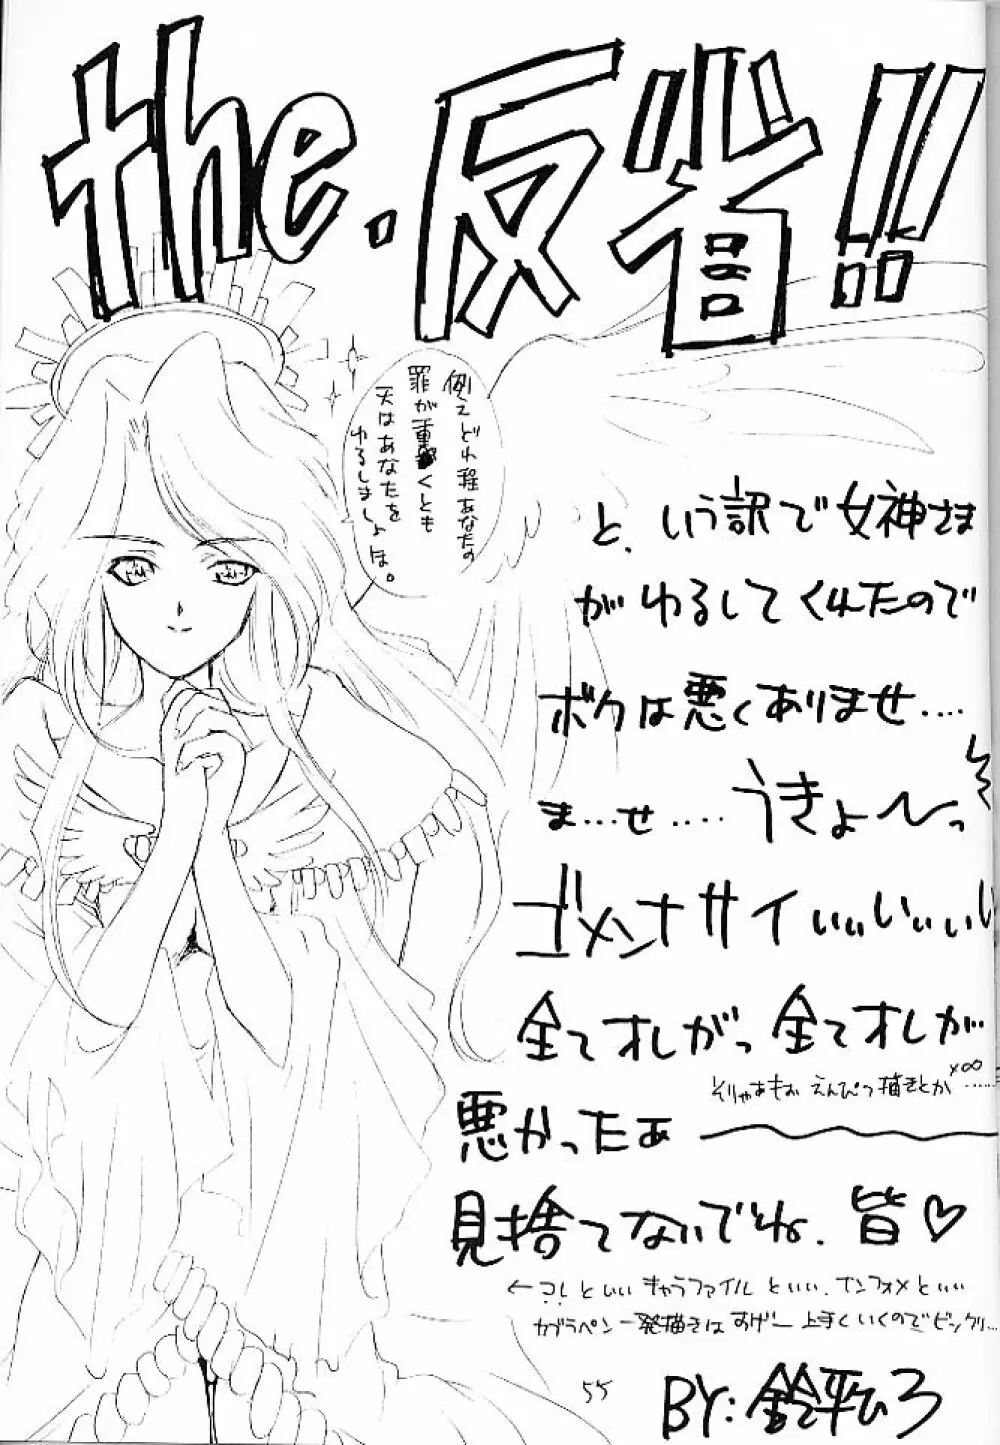 the.反省!!
例えどれ程あなたの
罪が重くとも
天はあなたを
ゆるしましょほ。
と、いう訳で女神さま
がゆるしてくれたので
ボクは悪くありませ....
ま...せ....うきょ〜っ
ゴメンナサイいぃいぃいい
全てオレがっ全てオレが
そりゃあもぉ えんぴつ描きとか
悪かったぁ
見捨てないでね、皆♡
←コ!といいキャラファイルといい、インフォメといい
カブラペン一発描きはすげー上手くいくのでビックリ...
55
BY:鈴平ひろ